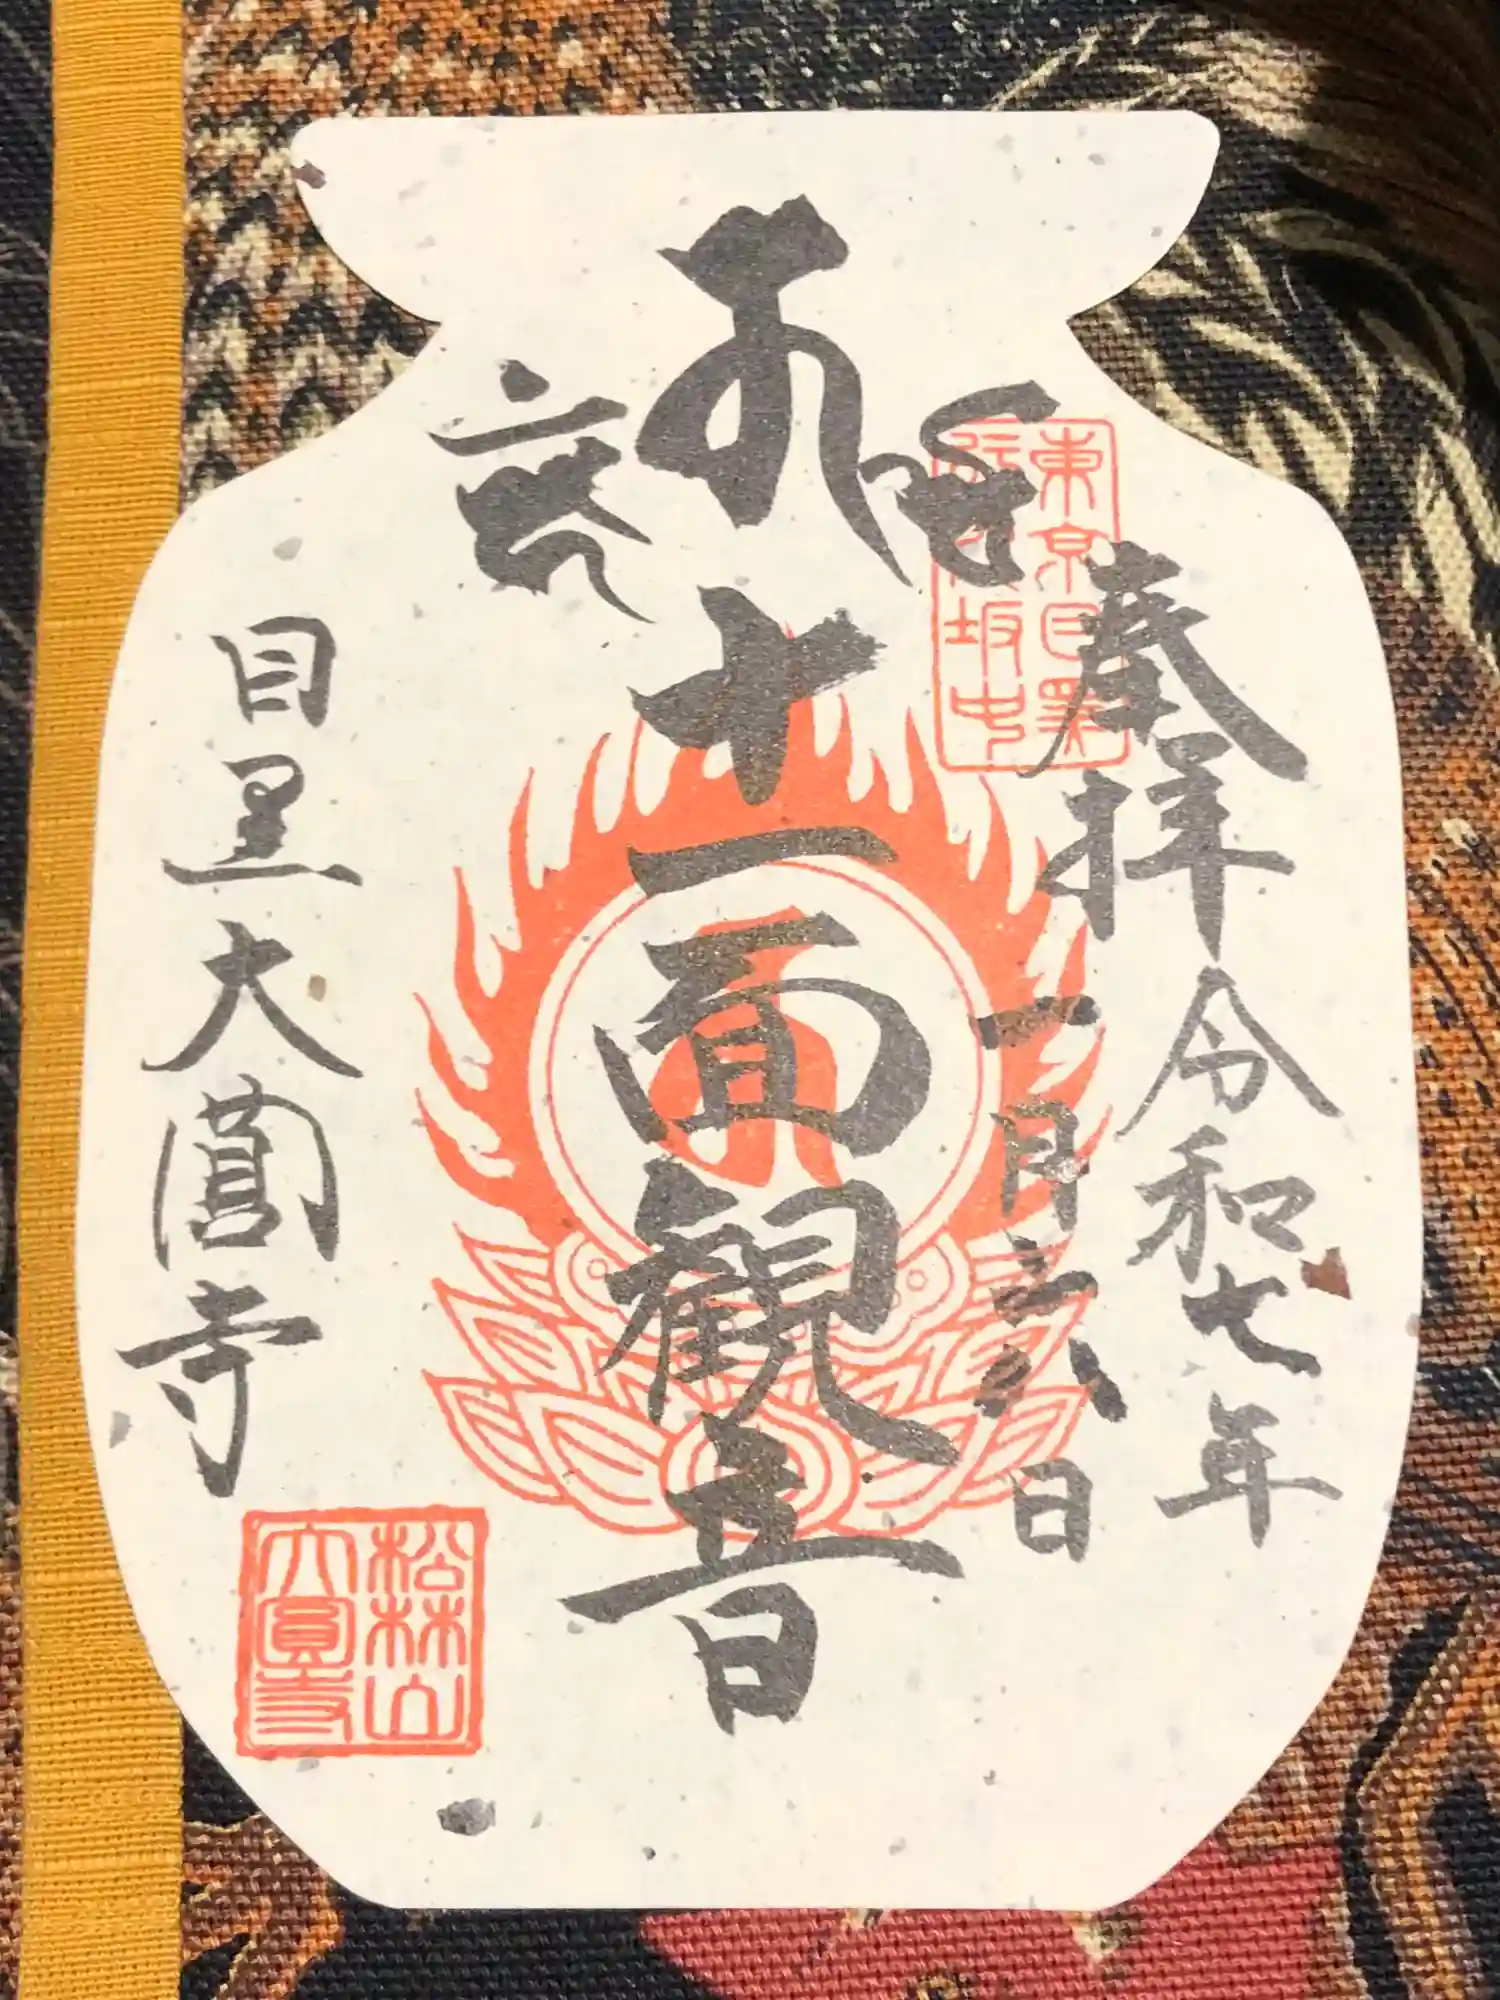 奉拝 令和七年
一月六日
十一面観音
目黒大圓寺
松林山
大圓寺
東京目黒
行人坂中